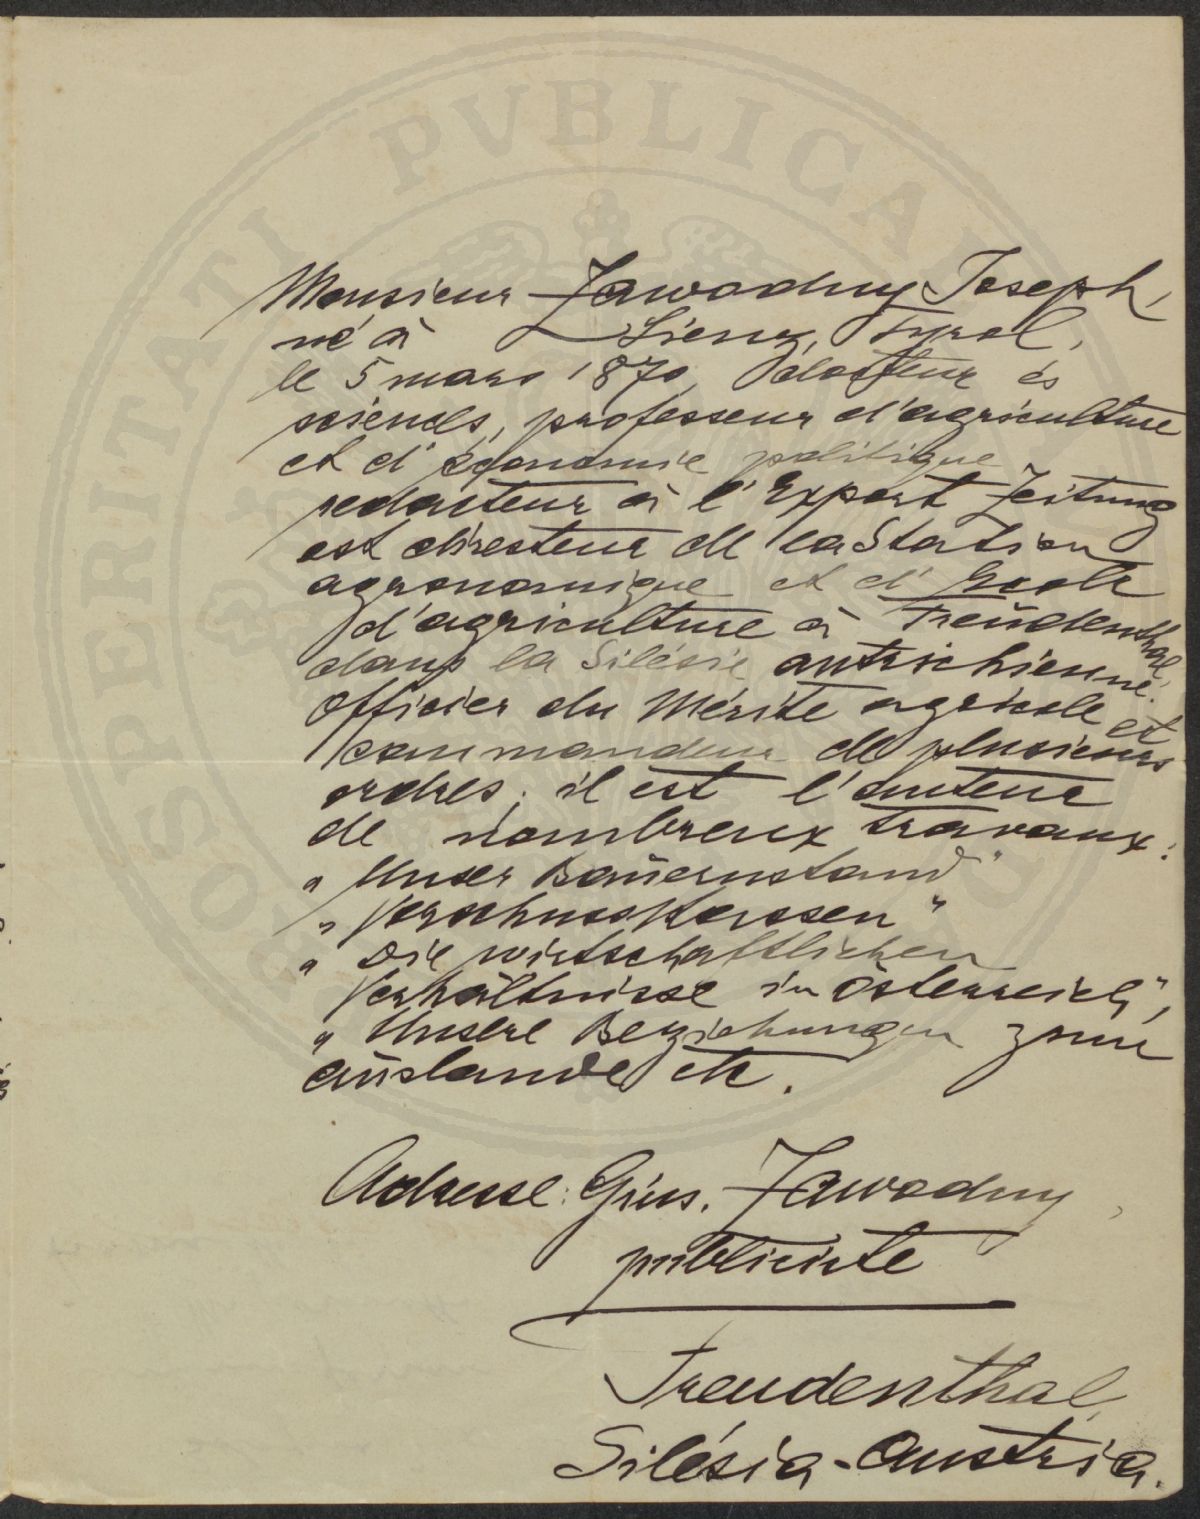 PROSPERITATI PVBLICAE
Monsieur Zawodny Joseph,
né à Lienz, Tyrol,
le 5 mars 1870, docteur ès
sciences, professeur d'agriculture
et d'économie politique
redacteur à l'Export Zeitung
est directeur de la Station
agronomique et d'Ecole
d'agriculture à Freŭdenthal,
dans la Silésie autrichienne.
Officier du Mérite agricole et
commandeur de plusieurs
ordres; il est l'auteur
de nombreux travaux:
„Unser Baŭernstand"
„Vorschusskassen"
„Die wirtschaftlichen
Verhältnisse in Österreich",
„Unsere Beziehungen zum
Aŭslande etc.
Adresse: Gius. Zawodny,
publiciste
Freudenthal,
Silésia-Austria.